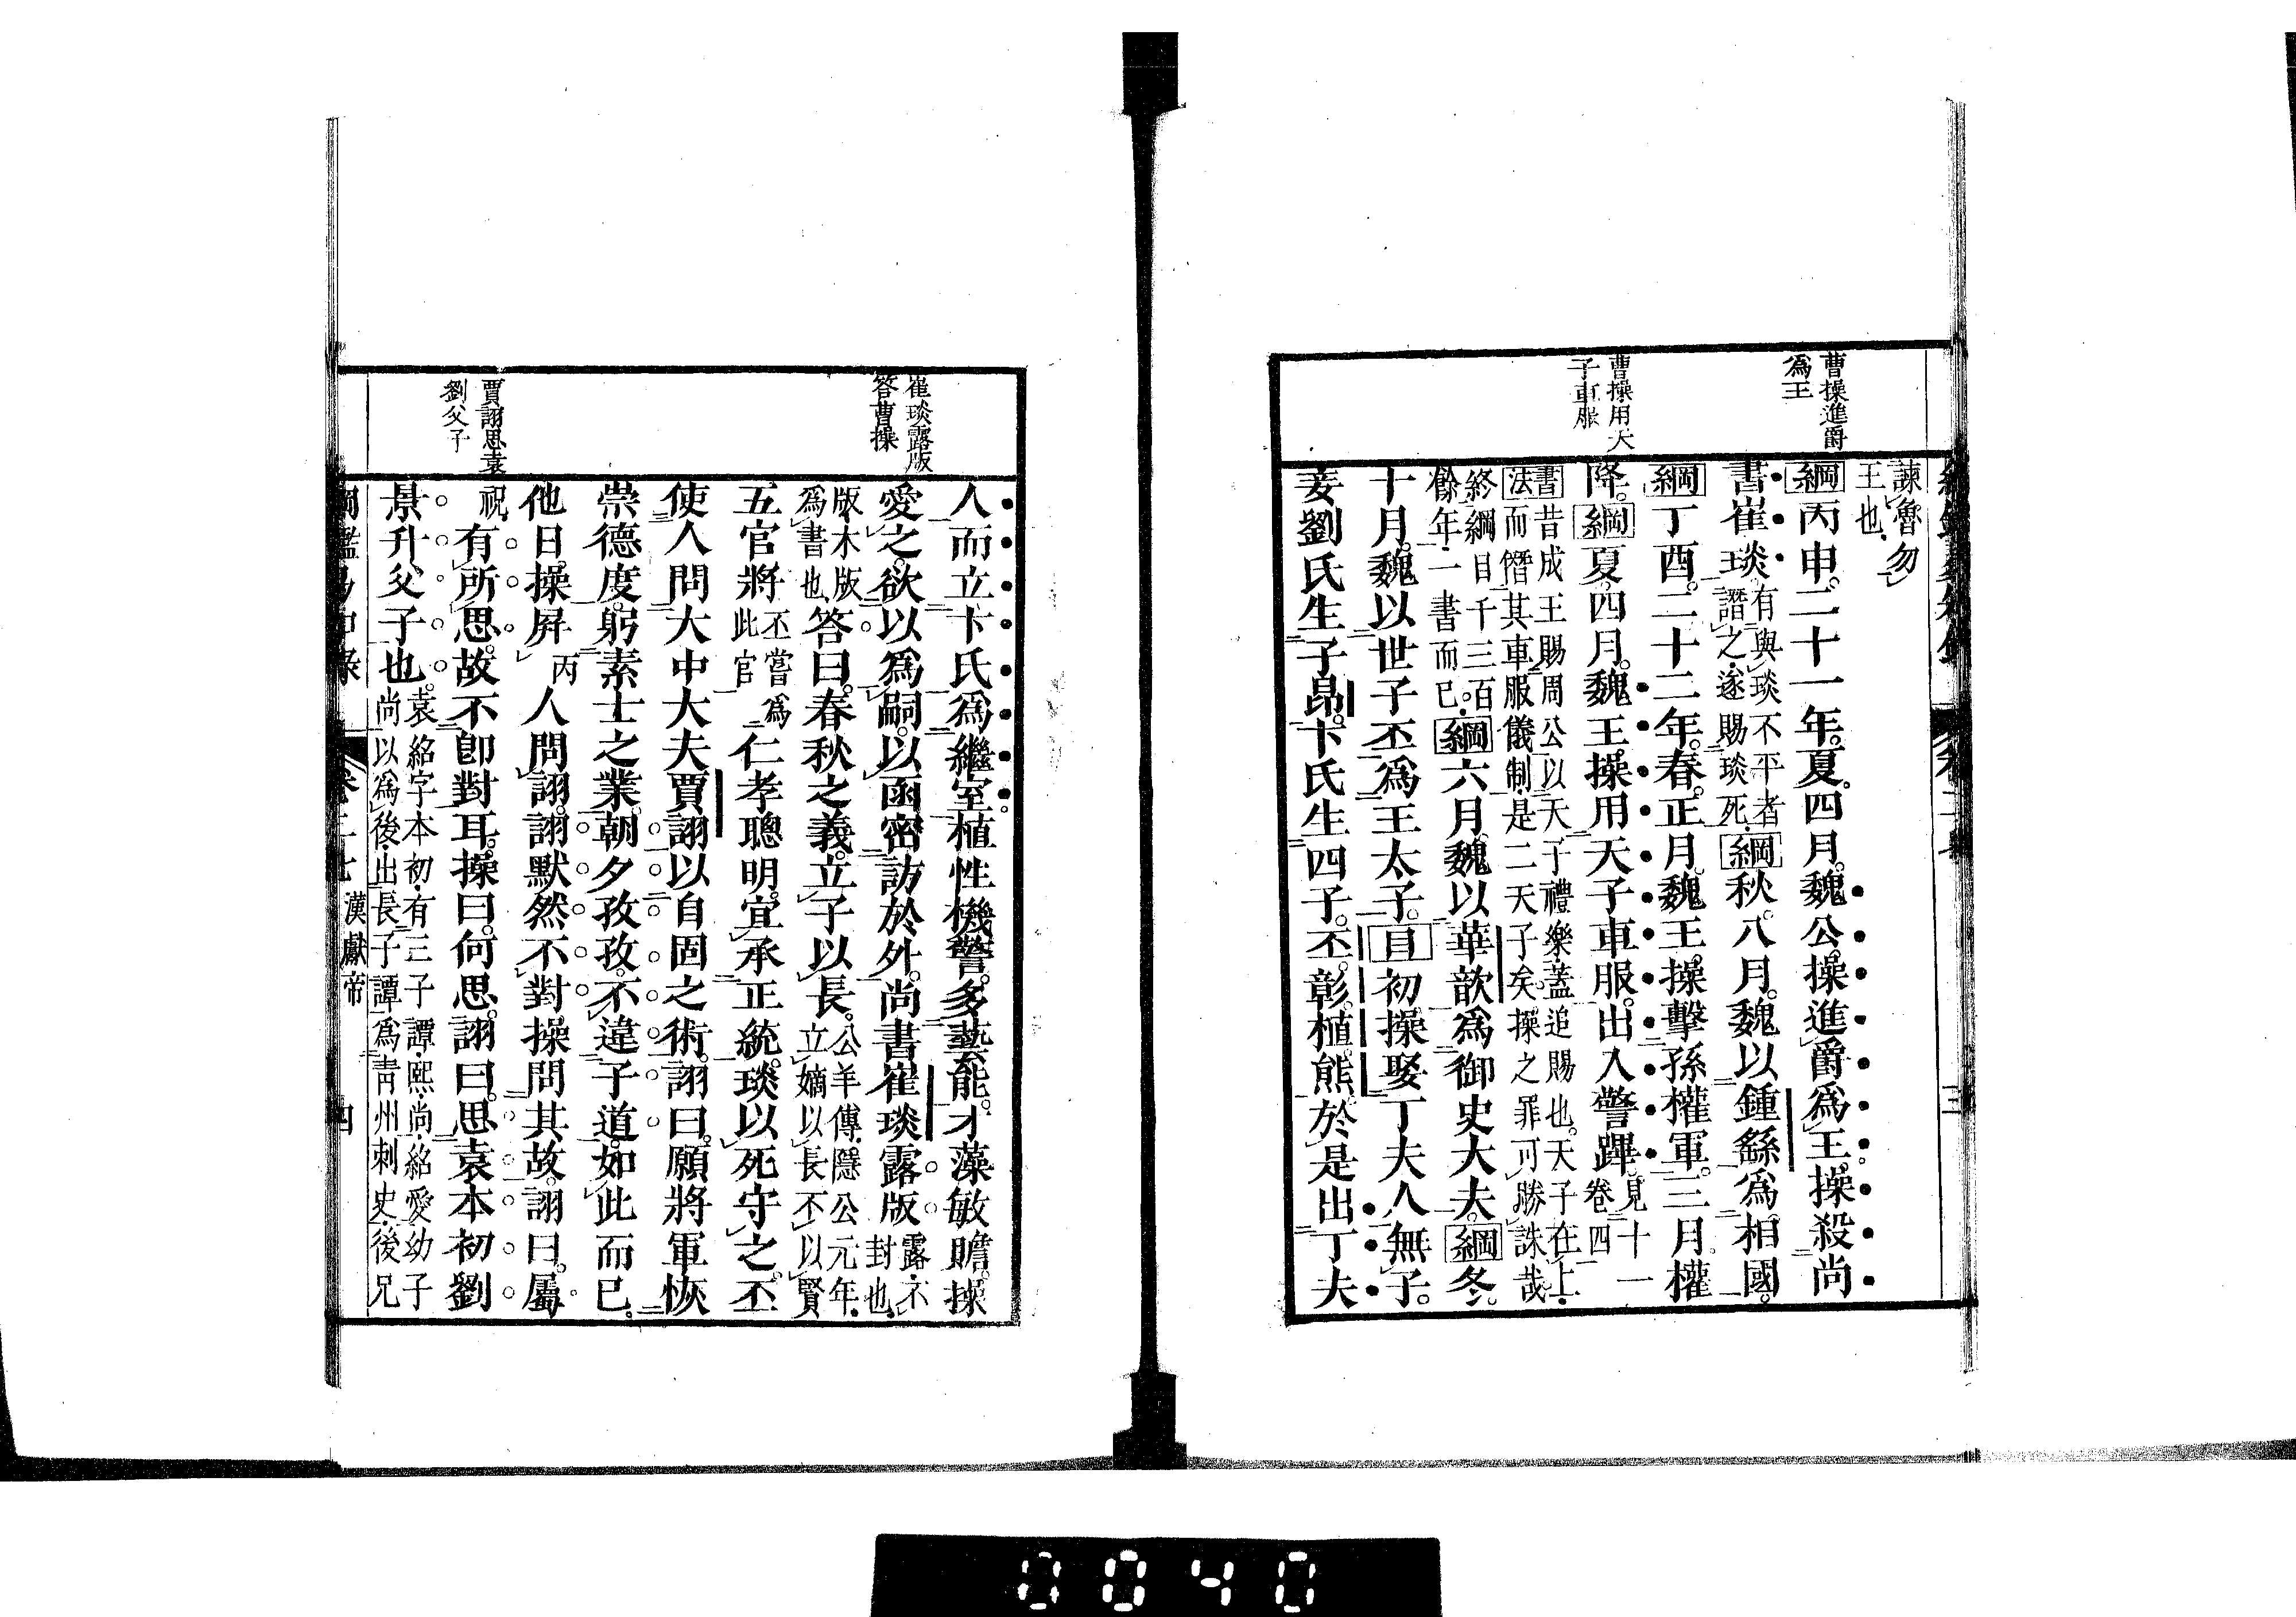 曹操進爵
爲王
曹操用天
子車服
諫魯勿
王也
綱丙申。二十一年。夏。四月。魏公。操進爵爲王。操殺尚
書崔琰。有與琰不平者
譖之遂賜琰死綱秋。八月。魏以鍾繇爲相國。
綱丁酉。二十二年。春。正月。魏王。操擊孫權軍。三月。權
降。綱夏。四月。魏王。操用天子車服。出入警蹕。見十一
卷四
書昔成王賜周公以天子禮樂蓋追賜也。天子在上
法而僭其車服儀制是二天子矣。操之罪可勝誅哉
終綱目千三百
餘年一書而已。綱六月。魏以華歆爲御史大夫。綱冬。
十月。魏以世子丕爲王太子。目初。操娶丁夫人無子。
妾劉氏生子昂。卞氏生四子。丕。彰。植。熊。於是出丁夫
三
崔琰露版
答曹操
賈詡思袁
劉父子
人而立卞氏爲繼室。植性機警。多藝能。才藻敏贍。操
愛之。欲以爲嗣。以函密訪於外。尚書崔琰露版露不
封也
版木版
爲書也答曰。春秋之義。立子以長。公羊傳隱公元年
立嫡以長不以賢
五官將丕嘗爲
此官仁孝聰明。宜承正統。琰以死守之。丕
使人問大中大夫賈詡以自固之術。詡曰。願將軍恢
崇德度。躬素士之業。朝夕孜孜。不違子道。如此而已。
他日。操屏丙人問詡。詡默然不對。操問其故。詡曰。屬
祝有所思。故不卽對耳。操曰。何思。詡曰。思袁本初劉
景升父子也。袁紹字本初有三子譚熙尚紹愛幼子
尚以爲後出長子譚爲靑州刺史後兄
漢獻帝
四
0040